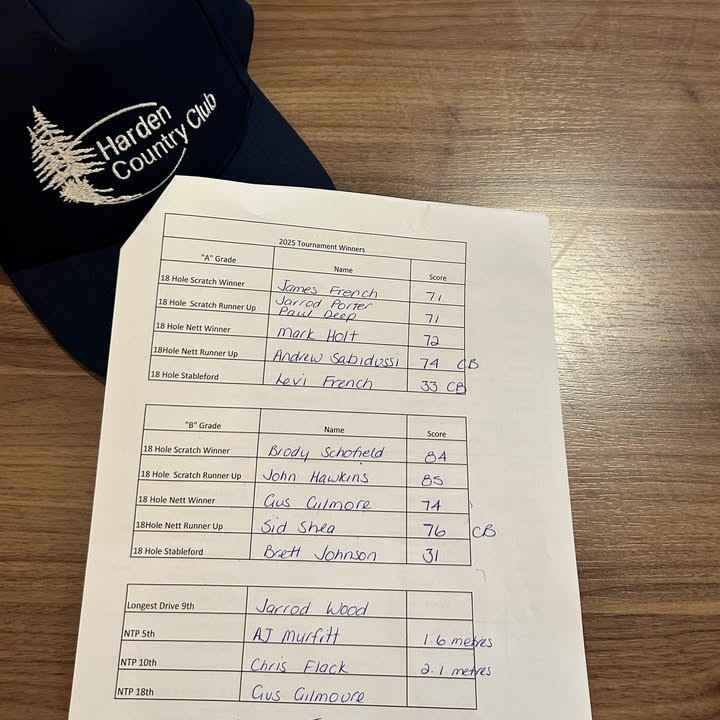 Harden
Country Club
2025 Tournament Winners
"A" Grade Name Score
18 Hole Scratch Winner James French 71
18 Hole Scratch Runner Up Jarrod Porter 71
Paul Deep
18 Hole Nett Winner Mark Holt 72
18Hole Nett Runner Up Andrew Sabidussi 74 CB
18 Hole Stableford Levi French 33 CB
"B" Grade Name Score
18 Hole Scratch Winner Brody Schofield 84
18 Hole Scratch Runner Up John Hawkins 85
18 Hole Nett Winner Gus Gilmore 74
18Hole Nett Runner Up Sid Shea 76 CB
18 Hole Stableford Brett Johnson 31
Longest Drive 9th Jarrod Wood
NTP 5th AJ Murfitt 1.6 metres
NTP 10th Chris Flack 2.1 metres
NTP 18th Gus Gilmoure